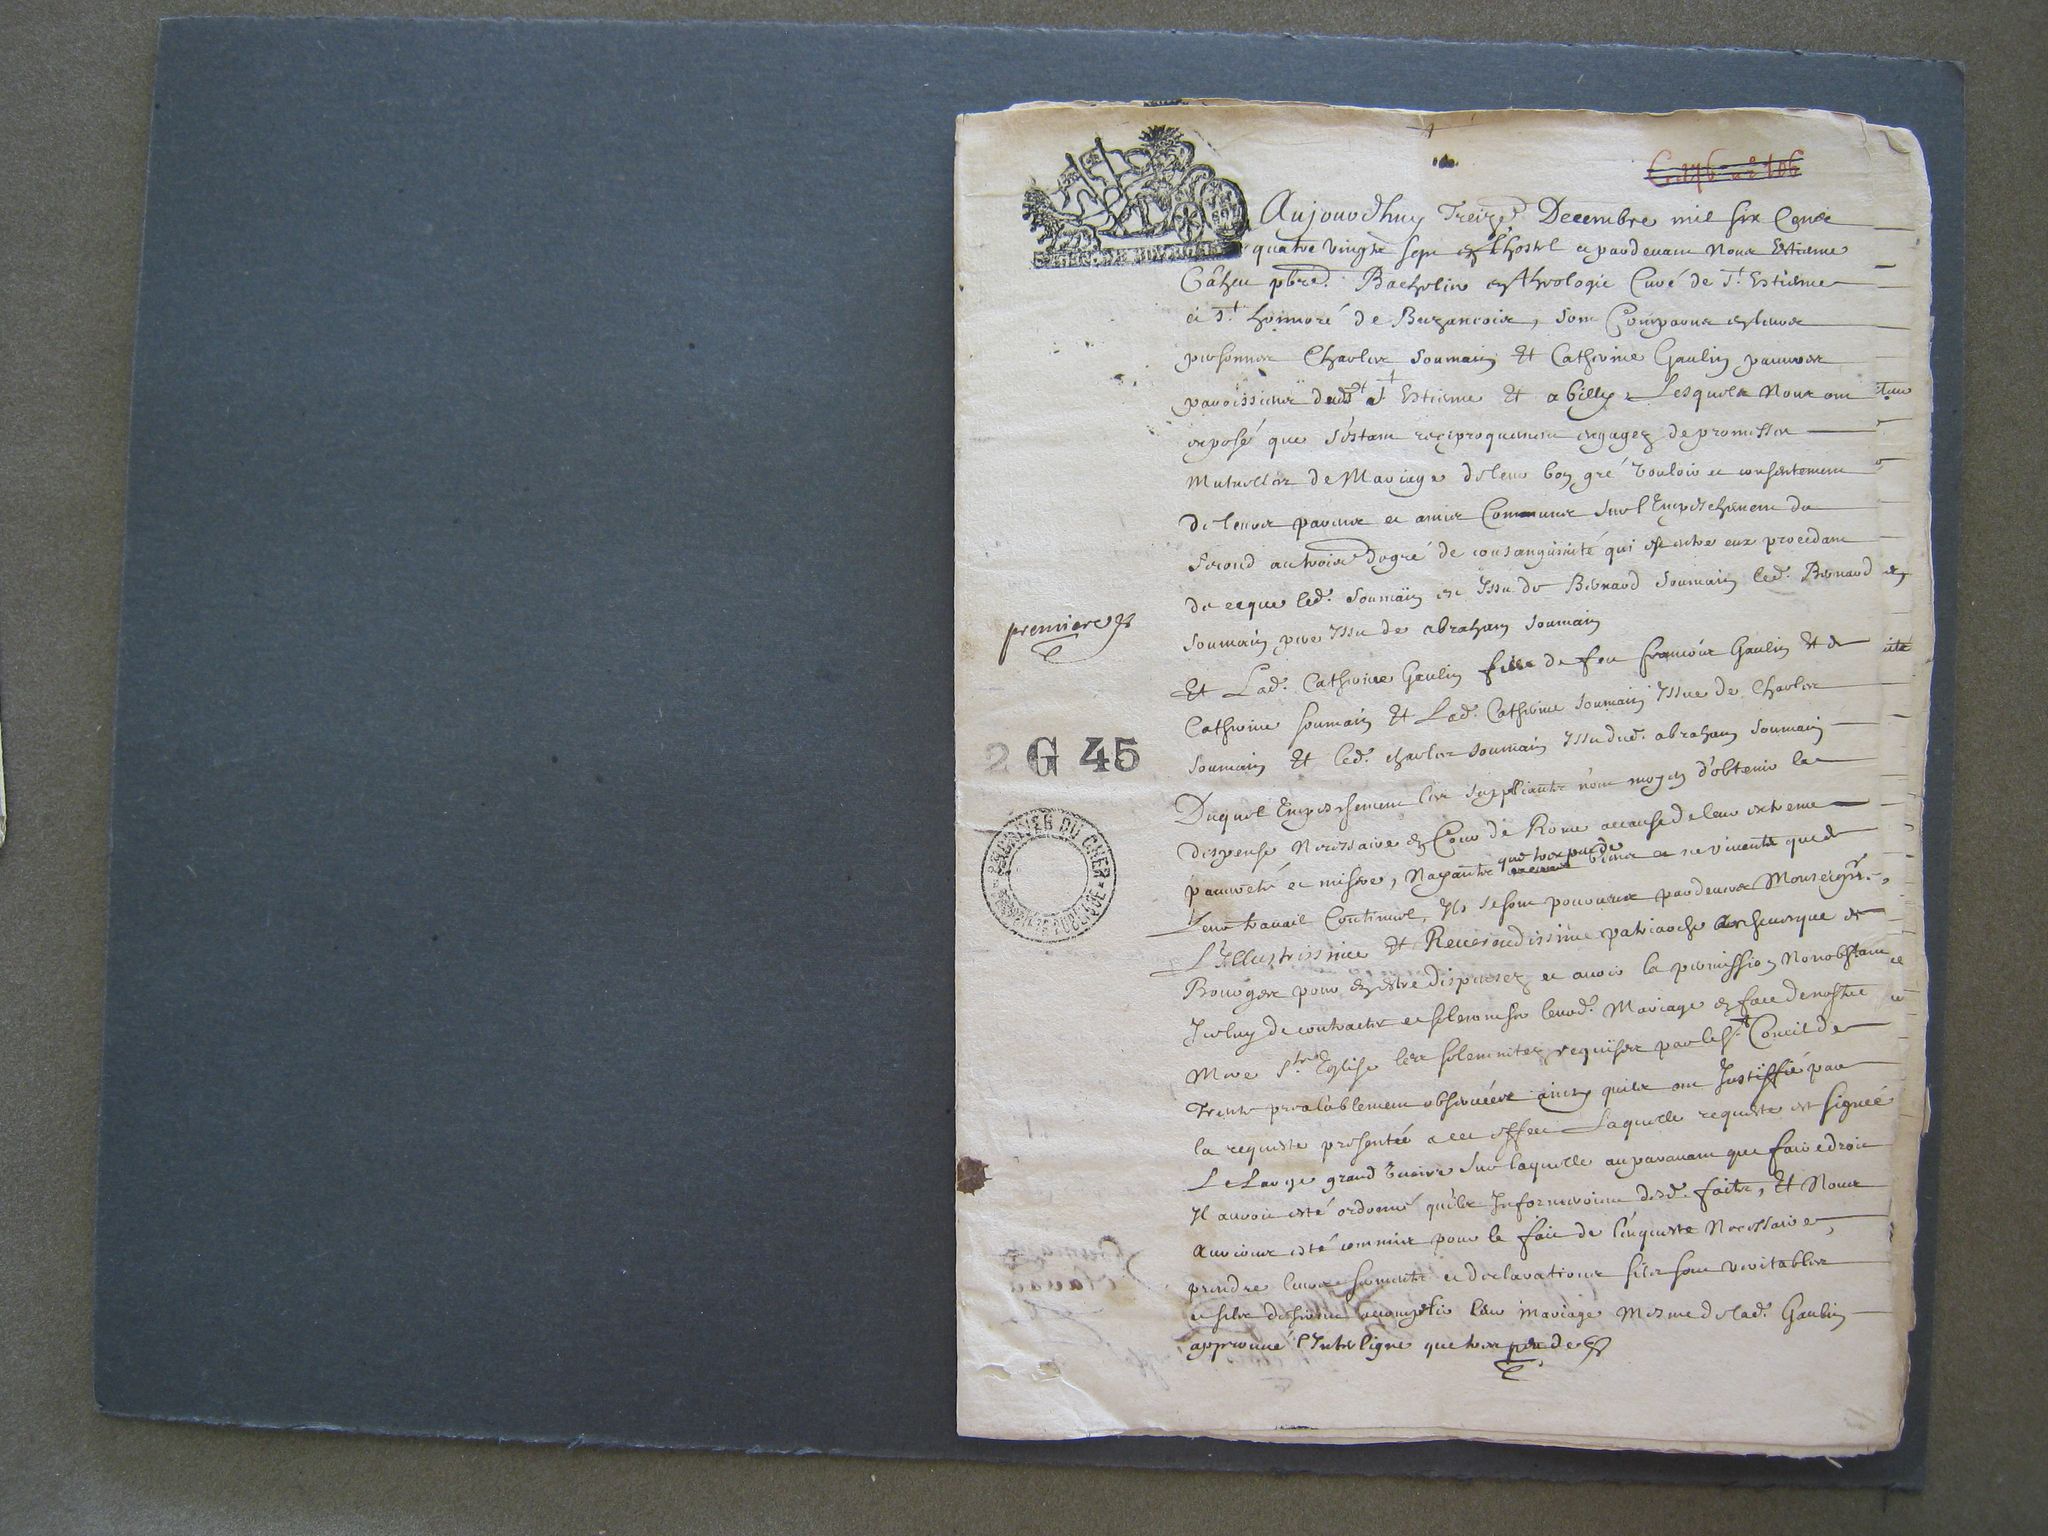 Aujourdhuy Treize Decembre mil six Cens
quatre vingts sept en Lhostel et pardevant Nous Estienne
pbre Bachelier en theologie Curé de St Estienne
et St honnoré de Buzancois, sont Comparus en leurs
personnes Charles Soumain Et Catherine Gaulin pauvres
paroissiens dud St Estienne Et abilly Lesquels Nous ont
exposé que s'estant reciproquement engagez de promesses
Mutuelles de Mariage de leur bon gré vouloir et consentement
de leurs parens et amis Communs sur l'Empeschement du
second au trois degré de consanguinité qui est entre eux procedant
de ce que led. Soumain est Issu de Bernard Soumain led. Bernard
Soumain Issu de abraham Soumain
premiere
Et Lad. Catherine Gaulin fille de feu francois Gaulin Et de
Catherine Soumain Et Lad. Catherine Soumain Issue de Charles
Soumain Et led. charles Soumain Issu dud. abraham Soumain
2 G 45
Duquel Empeschement les suppliants n'ont moyen d'obtenir la
dispense Necessaire en Cour de Rome acause de leur extreme
pauvreté et misere, Nayants que tres peu de biens et ne vivents que de
Leur travail Continuel, Ils se sont pourveus pardevers Monseigr.
L'Illustrissime Et Reverendissime patriarche Archevesque de
Bourges pour en estre dispensez et avoir la permission Nonobstant
Iceluy de contracter et solemniser leurd. Mariage en face de nostre
Mere Ste Eglise les solemnitez requises par le St Concil de
Trente prealablement observées ainsy quils ont Justiffié par
la requeste presentée a cet effect Laquelle requeste est signée
Le Large grand vicaire sur laquelle auparavant que faire droit
Il auroit esté ordonné quils Informeroient desd. faits, Et Nous
aurions esté commis pour le fait de l'enqueste Necessaire,
prendre leurs serments et declarations sils sont veritables
et sils desirent accomplir leur mariage Mesme de lad. Gaulin
approuvé l'Interligne que tres peu de
ARCHIVES DU CHER
PUBLIQUE